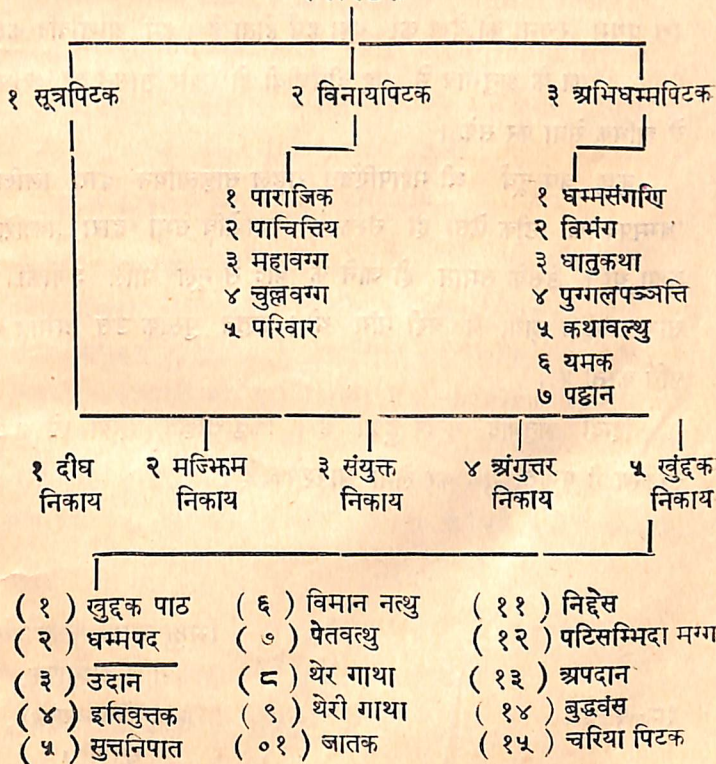 १ सूत्रपिटक २ विनायपिटक ३ अभिधम्मपिटक
१ पाराजिक
२ पाचित्तिय
३ महावग्ग
४ चुल्लवग्ग
५ परिवार
१ धम्मसंगणि
२ विभंग
३ धातुकथा
४ पुग्गलपञ्ञत्ति
५ कथावत्थु
६ यमक
७ पट्ठान
१ दीघ निकाय
२ मज्झिम निकाय
३ संयुक्त निकाय
४ अंगुत्तर निकाय
५ खुंद्दक निकाय
( १ ) खुद्दक पाठ
( २ ) धम्मपद
( ३ ) उदान
( ४ ) इतिवुत्तक
( ५ ) सुत्तनिपात
( ६ ) विमान नत्थु
( ७ ) पेतवत्थु
( ८ ) थेर गाथा
( ९ ) थेरी गाथा
( ०१ ) जातक
( ११ ) निद्देस
( १२ ) पटिसम्भिदा मग्ग
( १३ ) अपदान
( १४ ) बुद्धवंस
( १५ ) चरिया पिटक